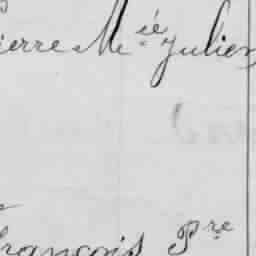 ierre Mie Julien
François Pre